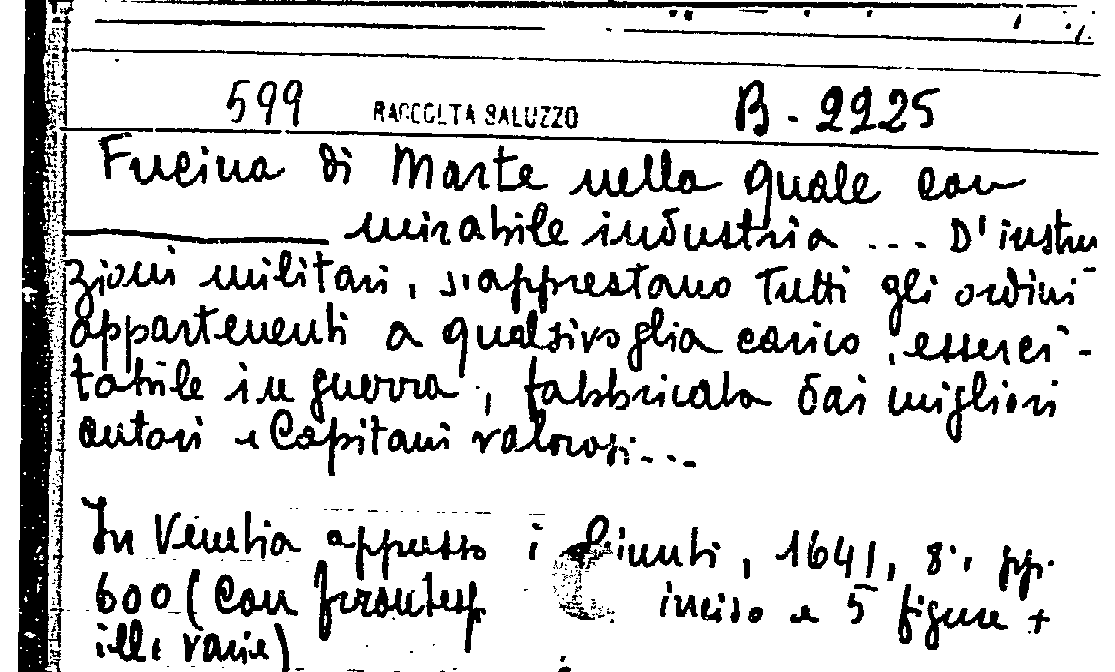 599 RACCOLTA SALUZZO B - 2225
Fucina di Marte nella quale con
mirabile industria ... D'instru
zioni militari, s'apprestano tutti gli ordini
appartenenti a qualsivoglia carico, esserci-
tabile in guerra, fabbricata dai migliori
autori e Capitani valorosi...
In Venetia appresso i Giunti, 1641, 8°, pp.
600 (Con frontesp. inciso e 5 figure +
ill. varie)